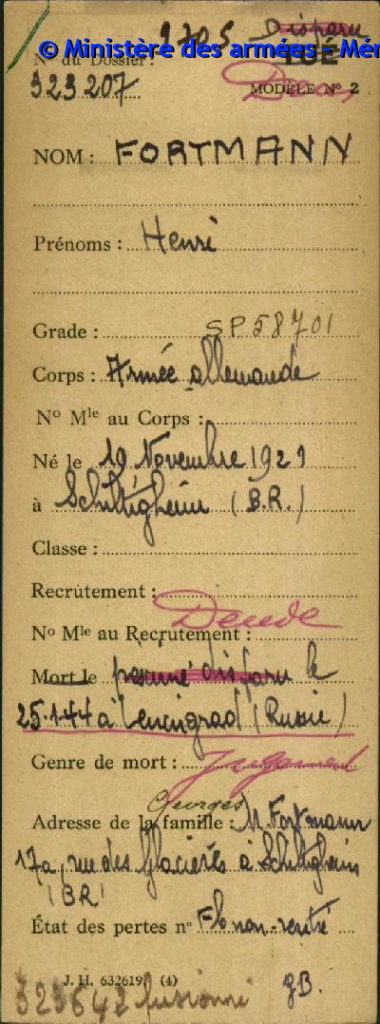 1705 Disparu
© Ministère des armées - Mém
N° du Dossier :
323207
MODÈLE N° 2
NOM : FORTMANN
Prénoms : Henri
Grade : SP58701
Corps : Armée allemande
N° Mle au Corps :
Né le 19 Novembre 1921
à Schiltigheim (B.R.)
Classe :
Recrutement :
Décédé
N° Mle au Recrutement :
Mort le présumé disparu le
25.1.44 à Leningrad (Russie)
Genre de mort : Jugement
Georges
Adresse de la famille : M. Fortmann
17a, rue des Glacières à Schiltigheim
(BR)
État des pertes n° Fb non-rentré
J. H. 632619. (4)
323642 fusionné gB.